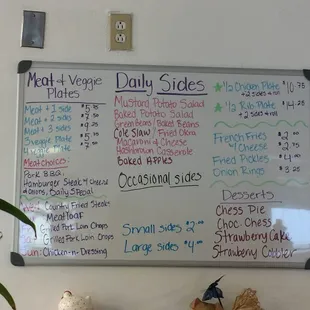 Meat & Veggie
Plates
Meat + 1 side
Meat + 2 sides
Meat + 3 sides
3 veggie plate
Meat choices:
Pork BBQ
Hamburger Steak
Daily Special
Country Fried Steak
Meatloaf
Grilled Pork Loin Chops
Grilled Pork Loin Chops
Sun: Chicken-n-Dressing
Daily Sides
Mustard Potato Salad
Baked Potato Salad
Green Beans / Baked Beans
Cole Slaw / Fried Okra
Macaroni & Cheese
Hashbrown Casserole
Baked Apples
Occasional sides
Small sides 2.00
Large sides 4.00
1/2 Chicken Plate $10.75
+ 2 sides & roll
1/2 Rib Plate $14.25
+ 2 sides & roll
French Fries $2.00
" Cheese $2.75
Fried Pickles $4.00
Onion Rings
Desserts
Chess Pie
Choc. Chess
Strawberry Cake
Strawberry Cobbler